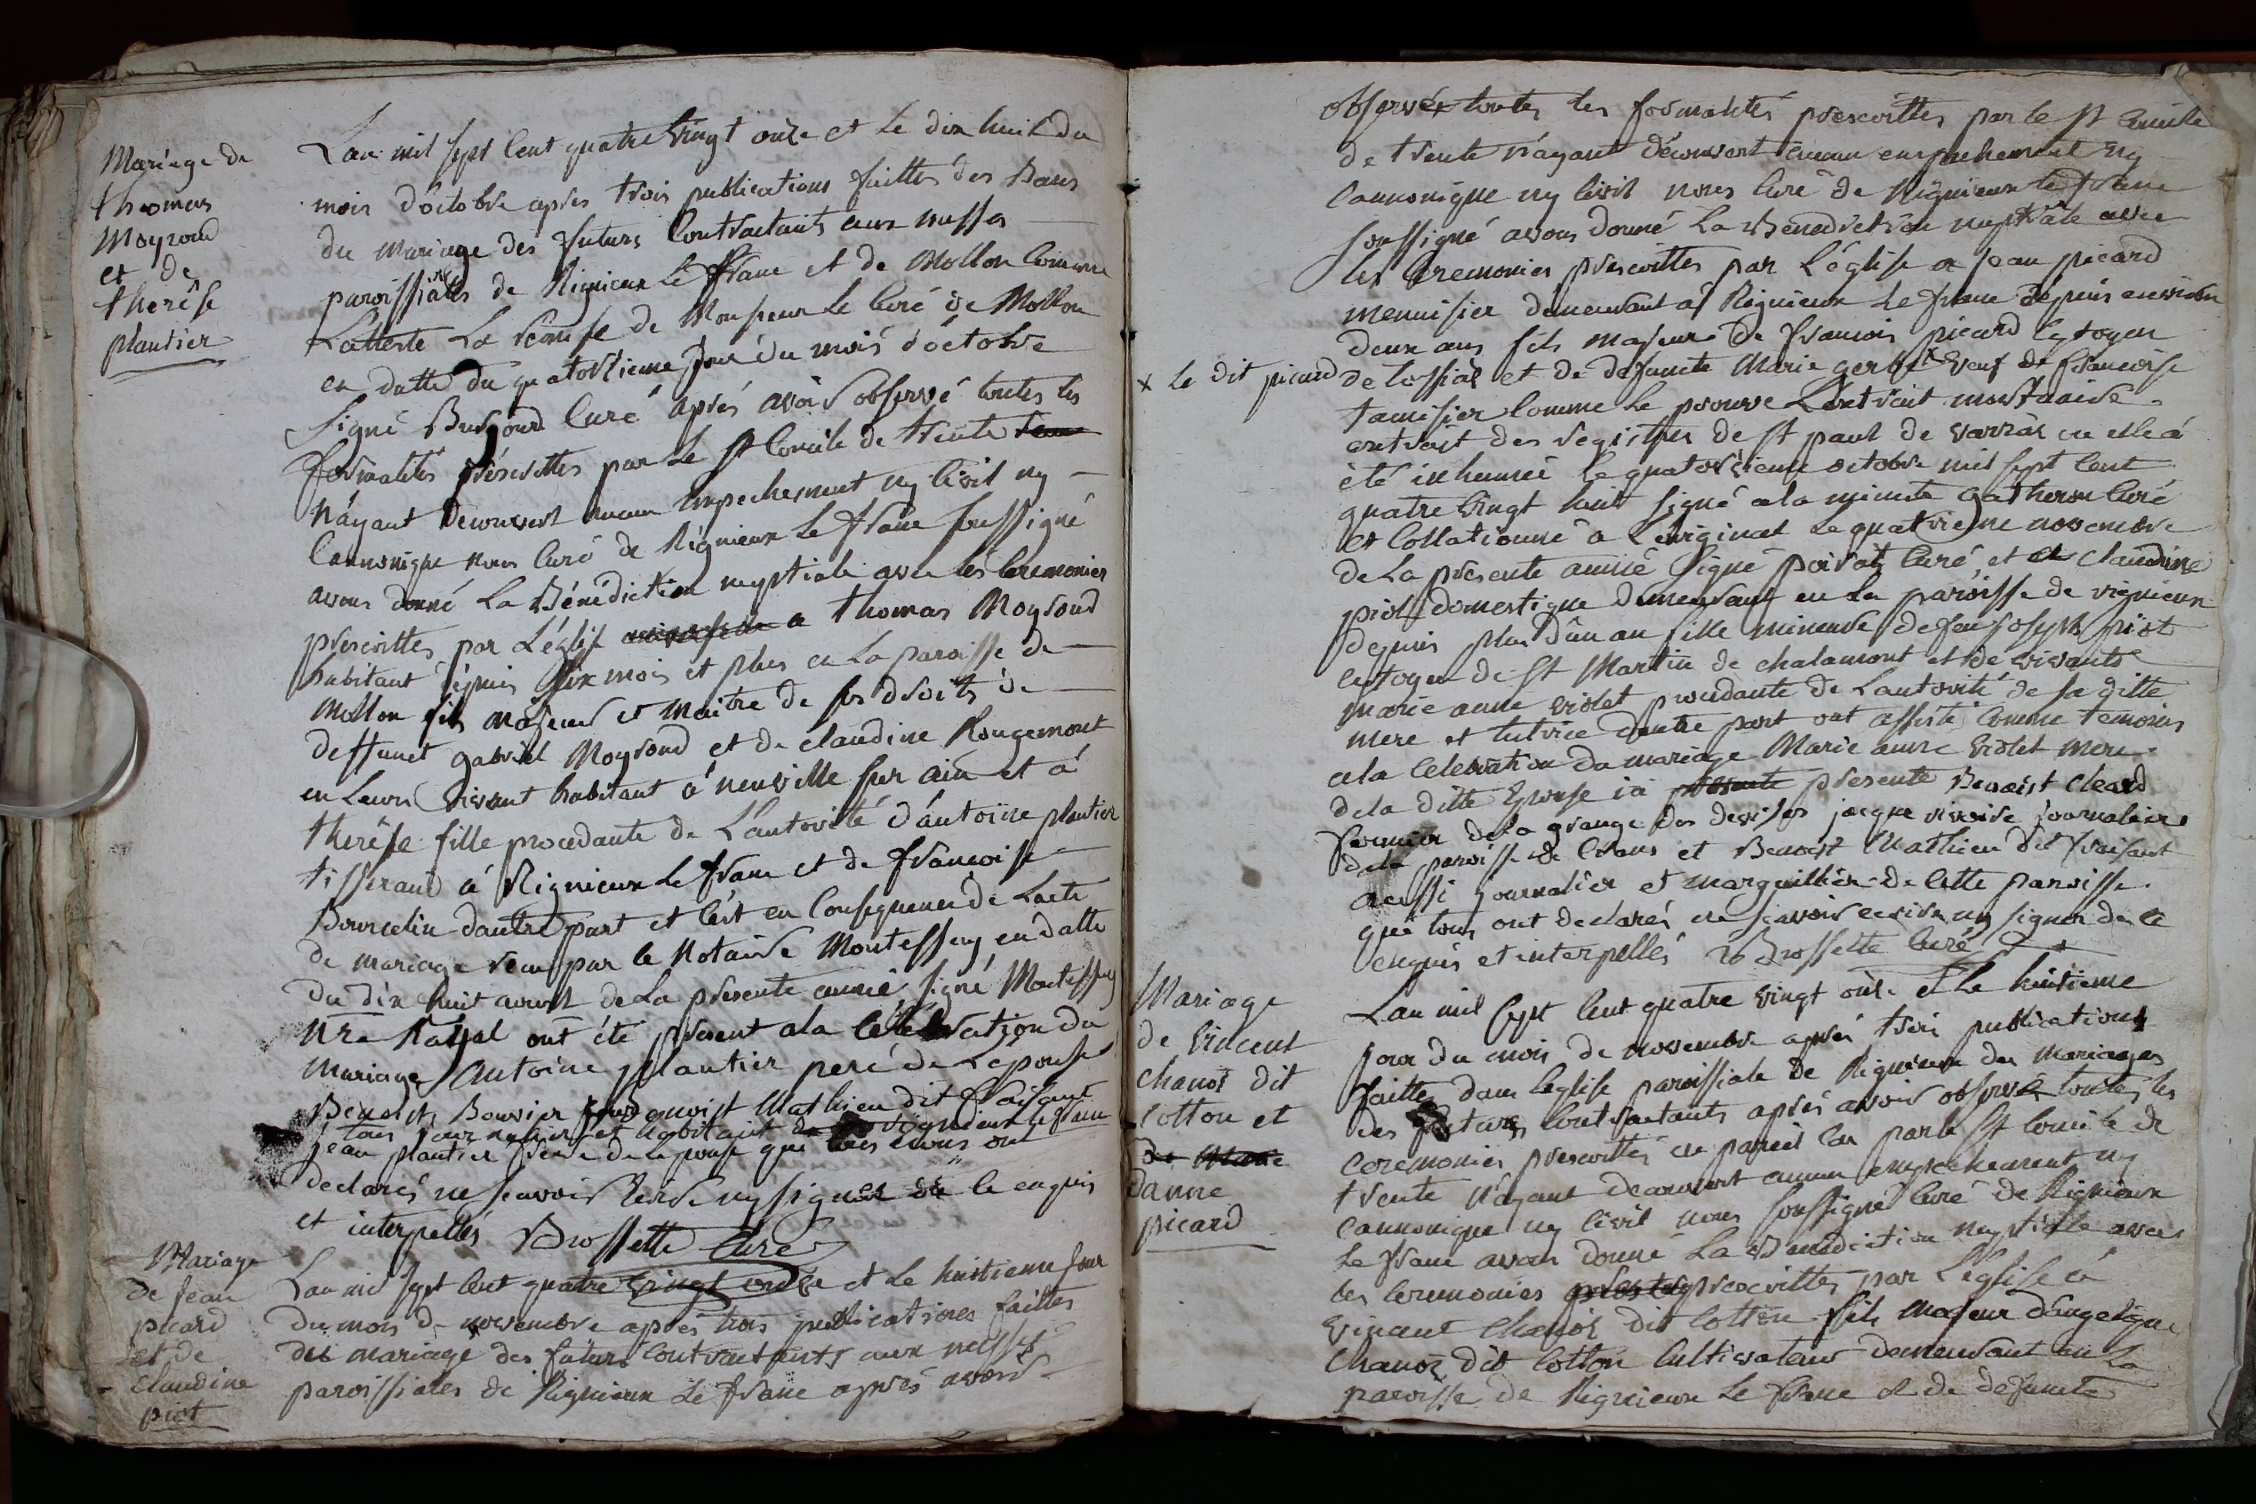 Mariage de
thomas
Moyroud
et de
therèse
plantier
Lan mil sept cent quatre vingt onze et le dix huit du
mois d'octobre apres trois publications faittes des Bans
du mariage des futurs Contractants aux messes
paroissiales de Rignieux le franc et de Mollon Comme
Latteste La remise de Monsieur le Curé de Mollon
en datte du quatorzieme jour du mois d'octobre
signé Curé après avoir observé toutes les
formalités préscrittes par le St Concile de trente
n'áyant decouvert aucun empechement ny Civil ny
Cannonique nous Curé de Rignieux le franc soussigné
avons donné la Bénédiction nuptiale avec les Ceremonies
prescrittes par L'églisse a thomas Moyroud
habitant dépuis six mois et plus en La paroisse de
Mollon fils majeur et maitre de ses droits de
deffunct gabriel Moyroud et de claudine Rougemont
en Leurs vivant habitant á neuville sur ain et á
therèse fille procedante de L'autorité d'ántoine plantier
tisserand á Rignieux le franc et de francoise
Bourcelin dautre part et c'ést en Consequence de Lacte
de mariage recu par le Notaire Montessuy en datte
du dix huit aoust de La presente année signé Montessuy
Nre Royal ont été present ala celebration du
mariage Antoine plantier peré de Lepouse
Benoist Bouvier benoist Mathieu dit fraisant
tous journalier et habitant Rignieux le franc
jean plantier frere de Lepouse qui tous ont
declarés ne scavoir Ecrire ny signer de ce enquis
et interpellés Brossette Curé
Mariage
de jean
picard
et de
claudine
piot
Lan mil sept cent quatre vingt onze et le huitieme jour
du mois de novembre après trois publications faittes
du mariage des futurs Contractants aux messes
paroissiales de Rignieux le franc après avoir
observéx toutes les formalités prescrittes par le St Concile
de trente n'áyant découvert aucun empechement ny
Cannonique ny Civil nous Curé de Rignieux le franc
soussigné avons donné La Bénédiction nuptiale avec
les Ceremonies prescrittes par L'églisse a jean picard
menuisier demeurant á Rignieux le franc depuis environ
deux ans fils majeur de francois picard Cytoyen
x le dit picard
de Lossial et de defuncte Marie gerbe x veuf de francoise
tamisier Comme le prouve Lextrait mortuaire
extrait des registres de St paul de varras ou elle á
été inhumée le quatorzieme octobre mil sept Cent
quatre vingt huit signé a la minute gatheron Curé
et Collationné à Loriginal le quatrieme novembre
de La presente année signé poirat Curé, et claudine
piot domestique demeurant en La paroisse de rignieux
depuis plus d'ún an fille mineure de feu joseph piot
Cytoyen de St Martin de chalamont et de vivante
marie anne violet procedante de Lautorité de sa ditte
mere et tutrice dautre part ont assisté Comme temoins
ala Celebration du mariage Marie anne violet mere
dela ditte Epouse ici presente Benoist cleard
fermier dela grange des devises jacque vivoire journalier
dela paroisse de Crans et Benoist Mathieu dit fraisant
aussi journalier et marguillier de Cette paroisse
qui tous ont declarés ne scavoir ecrire ny signer de ce
enquis et interpellés Brossette Curé
Mariage
de vincent
chanoz dit
Cotton et
De Marie
danne
picard
Lan mil sept Cent quatre vingt onze et le huitieme
jour du mois de novembre après trois publications
faittes dans leglise paroissiale de Rignieux du mariages
des futurs Contractants après avoir observé toutes les
ceremonies prescrittes en pareil Cas par le St Concile de
trente n'áyant decouvert aucun empechement ny
cannonique ny Civil nous soussigné Curé de Rignieux
le franc avons donné La Benediction nuptiale avec
les Ceremonies prescrittes par L'églisse á
vincent chanoz dit Cotton fils majeur d'angelique
chanoz dit Cotton Cultivateur demeurant en La
paroisse de Rignieux le franc et de defuncte